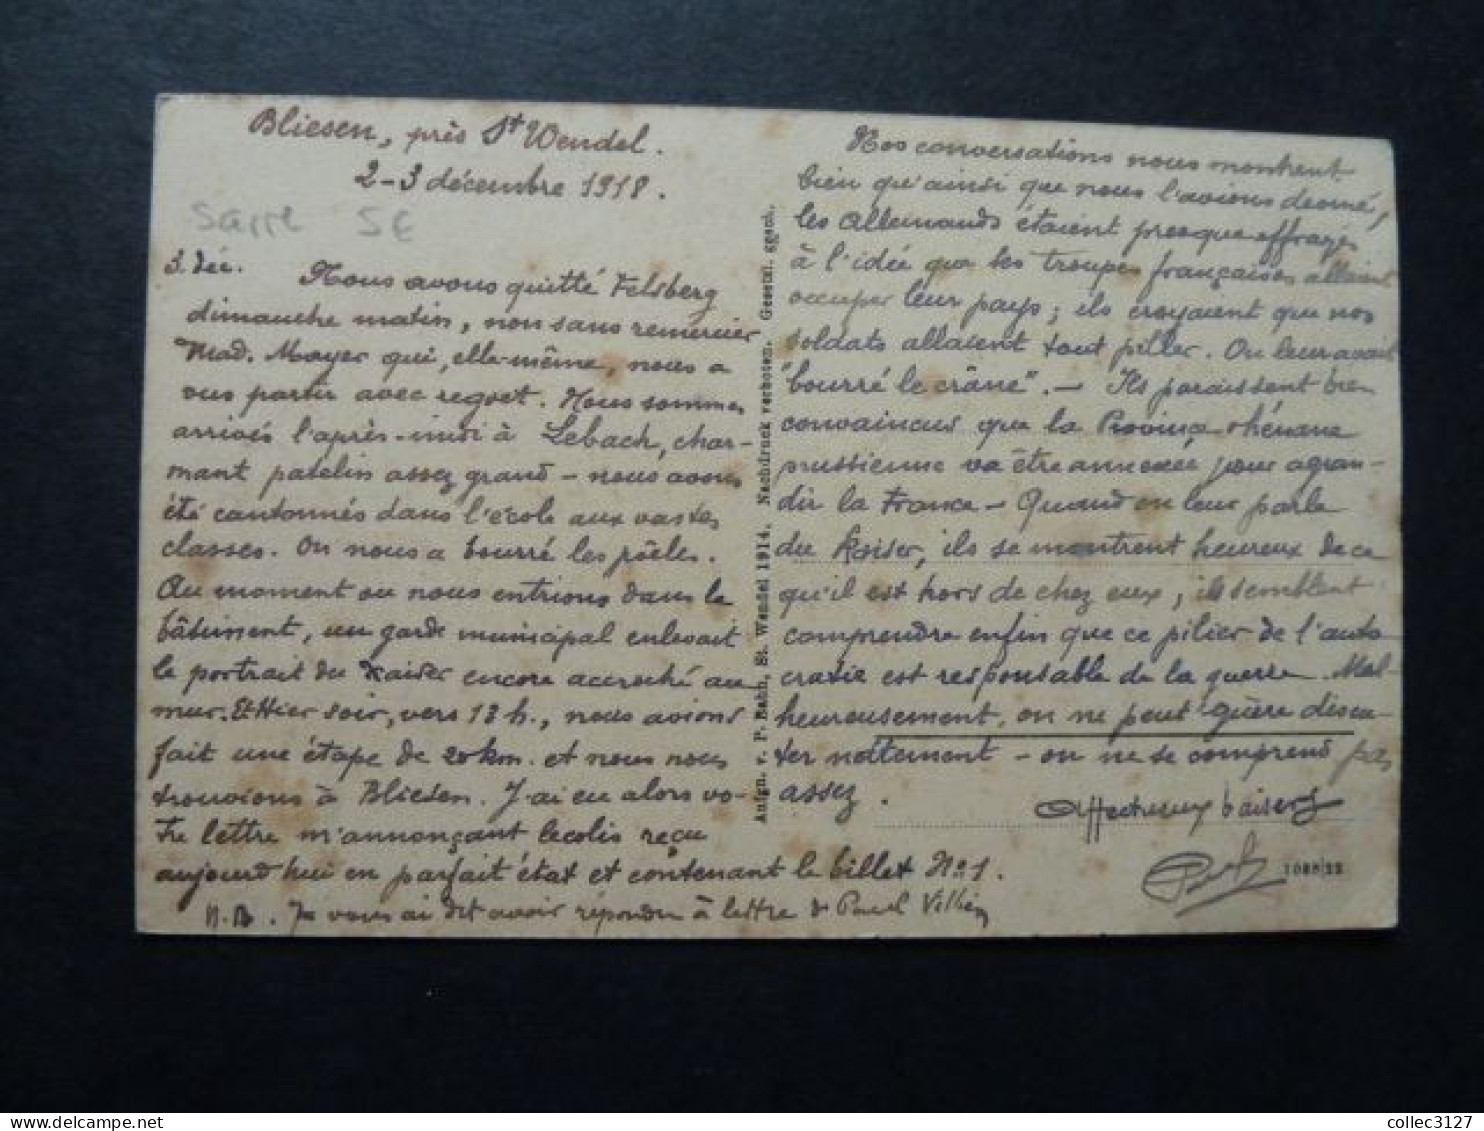 Bliesen, près St Wendel.
2-3 décembre 1918.
Sarre 5€
3. déc. Nous avons quitté Felsberg
dimanche matin, non sans remercier
Mad. Mayer qui, elle-même, nous a
vus partir avec regret. Nous sommes
arrivés l'après-midi à Lebach, char-
mant patelin assez grand - nous avons
été cantonnés dans l'école aux vastes
classes. On nous a bourré les poêles.
Au moment où nous entrions dans le
bâtiment, un garde municipal enlevait
le portrait du Kaiser encore accroché au
mur. Et Hier soir, vers 18 h., nous avions
fait une étape de 20 km. et nous nous
trouvions à Bliesen. J'ai eu alors vo-
tre lettre m'annonçant le colis reçu
aujourd'hui en parfait état et contenant le billet No 1.
N.B. Je vous ai dit avoir répondu à lettre de Paul
Aufgn. v. P. Hahn, St. Wendel 1914. Nachdruck verboten. Gesetzl. gesch.
Nos conversations nous montrent
bien qu'ainsi que nous l'avions deviné,
les Allemands étaient presque effrayés
à l'idée que les troupes françaises allaient
occuper leur pays; ils croyaient que nos
soldats allaient tout piller. On leur avait
"bourré le crâne". - Ils paraissent bien
convaincus que la Province rhénane
prussienne va être annexée pour agran-
dir la France - Quand on leur parle
du Kaiser, ils se montrent heureux de ce
qu'il est hors de chez eux; ils semblent
comprendre enfin que ce pilier de l'auto-
cratie est responsable de la guerre. Mal-
heureusement, on ne peut guère discu-
ter nettement - on ne se comprend pas
assez.
Affectueux baisers
1086/22
collec3127